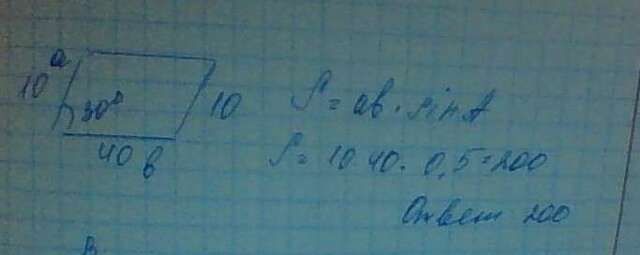 a
10
30°
10
40 b
S = ab · sin A
S = 10 40 · 0,5 = 200
Ответ 200
В